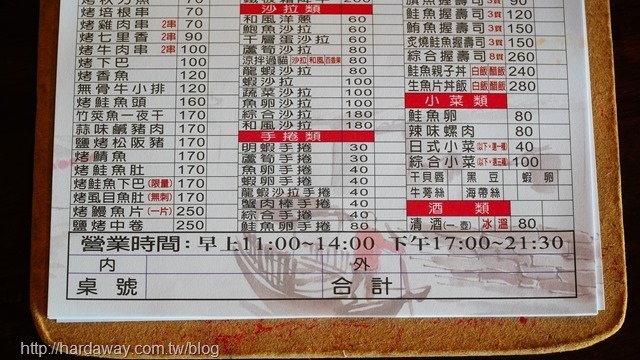 烤培根串 70
烤雞肉串 2串 70
烤七里香 2串 90
烤牛肉串 2串 100
烤下巴 100
烤香魚 120
無骨牛小排 120
烤鮭魚頭 160
竹筴魚一夜干 170
蒜味鹹豬肉 170
鹽烤松阪豬 170
烤鯖魚 170
烤鮭魚肚 170
烤鮭魚下巴(限量) 170
烤虱目魚肚(無刺) 170
烤鰻魚片(一片) 250
鹽烤中卷 250
沙拉類
和風洋蔥 60
鮑魚沙拉 60
千層蛋沙拉 60
蘆筍沙拉 80
涼拌過貓 沙拉 和風 百香果 80
龍蝦沙拉 80
蔬菜沙拉 100
魚卵沙拉 100
綜合沙拉 180
和風沙拉 180
手捲類
明蝦手捲 30
蘆筍手捲 30
魚卵手捲 40
蝦卵手捲 40
龍蝦沙拉手捲 40
蟹肉棒手捲 40
綜合手捲 40
鮭魚卵手捲 80
旗魚握壽司 3貫 90
鮭魚握壽司 3貫 120
鮪魚握壽司 3貫 150
炙燒鮭魚握壽司 3貫 150
綜合握壽司 8貫 260
鮭魚親子丼 白飯 醋飯 240
生魚片丼飯 白飯 醋飯 280
小菜類
鮭魚卵 80
辣味螺肉 80
日式小菜(以下,選一種) 40
綜合小菜(以下,選三種) 100
干貝唇 黑豆 蝦卵
牛蒡絲 海帶絲
酒類
清酒(一壺) 冰 溫 80
營業時間:早上11:00~14:00 下午17:00~21:30
內 外
桌號 合計
http://hardaway.com.tw/blog